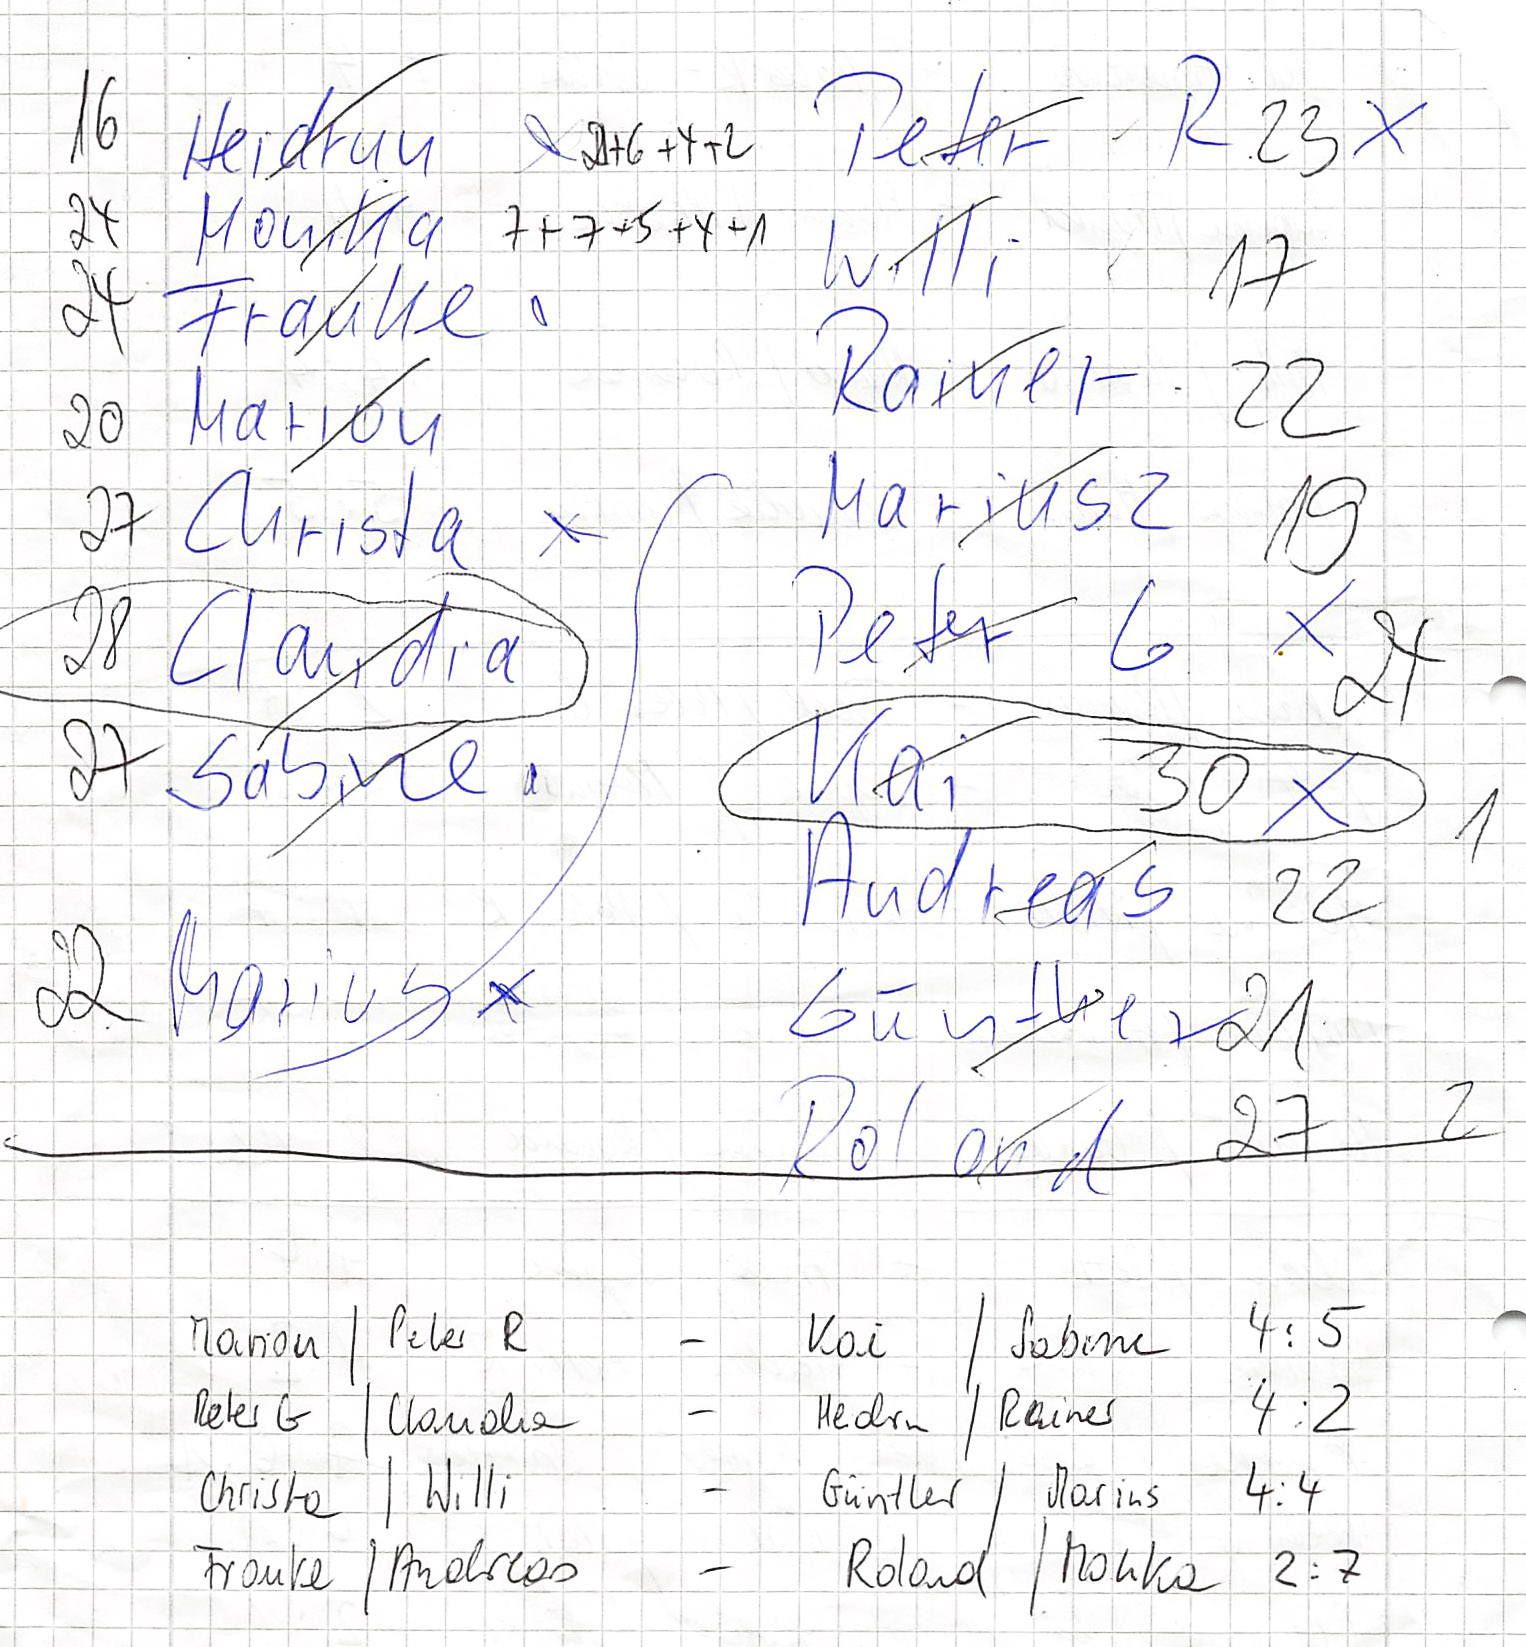 16 Heidrun x 2+6+4+2 Peter R 23 x
24 Monika 7+7+5+4+1 Willi 17
24 Frauke Rainer 22
20 Marion Mariusz 19
27 Christa x Peter G x 24
28 Claudia Kai 30 x 1
27 Sabine Andreas 22
22 Marius x Günther 21
Roland 27 2
Marion / Peter R - Kai / Sabine 4:5
Peter G / Claudia - Hedrn / Rainer 4:2
Christa / Willi - Günther / Marius 4:4
Frauke / Andreas - Roland / Monika 2:7